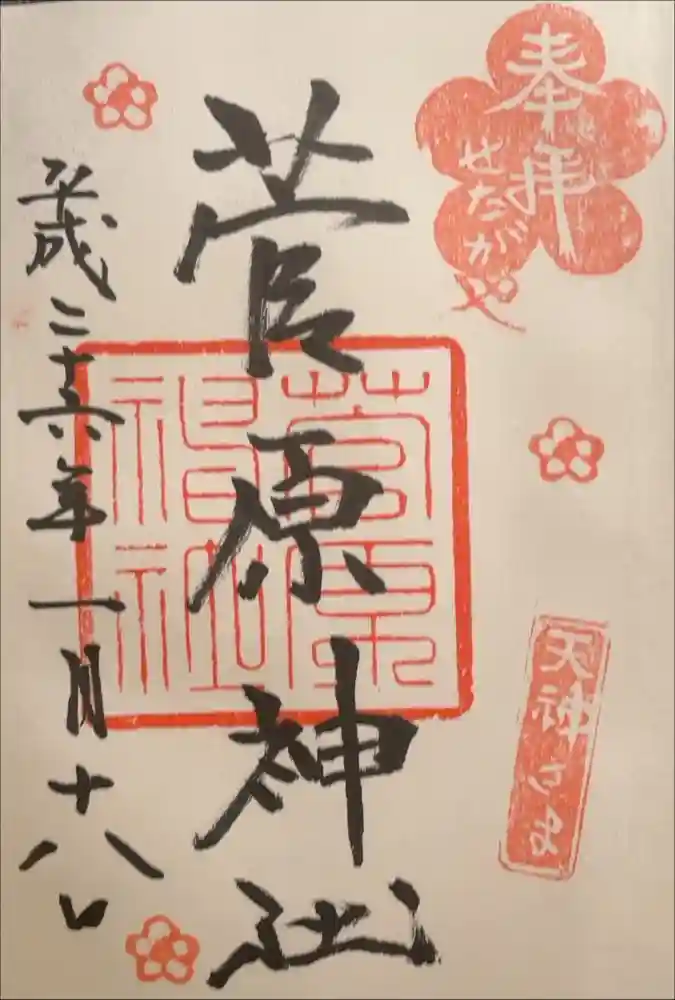 奉拝
せたがや
天神さま
菅原神社
菅原
神社
平成二十六年一月十八日